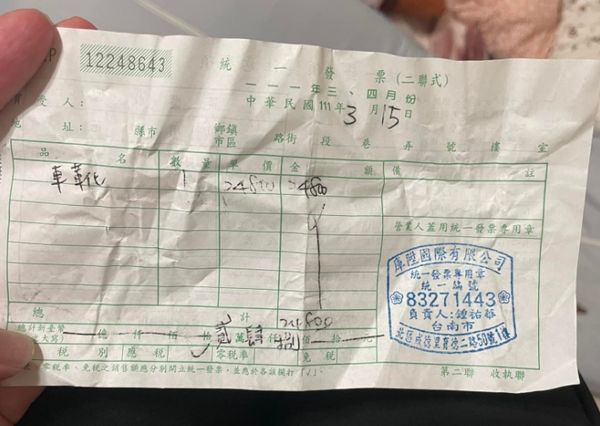 P 12248643
統一發票(二聯式)
一一一年三、四月份
中華民國111年3月15日
買受人:
地址: 縣市 鄉鎮市區 路街 段 巷 弄 號 樓 室
品名 數量 單價 金額 備註
1 24800 24800
營業人蓋用統一發票專用章
庫陞國際有限公司
統一發票專用章
統一編號
83271443
負責人:鍾祐
台南市
總計 24800
總計新臺幣(大寫) 億 仟 佰 拾 貳 萬 肆 仟 捌 佰 拾 元
稅別 應稅 ✓ 零稅率 免稅
零稅率、免稅之銷售額應分別開立統一發票,並應於各該欄打「√」。
第二聯 收執聯